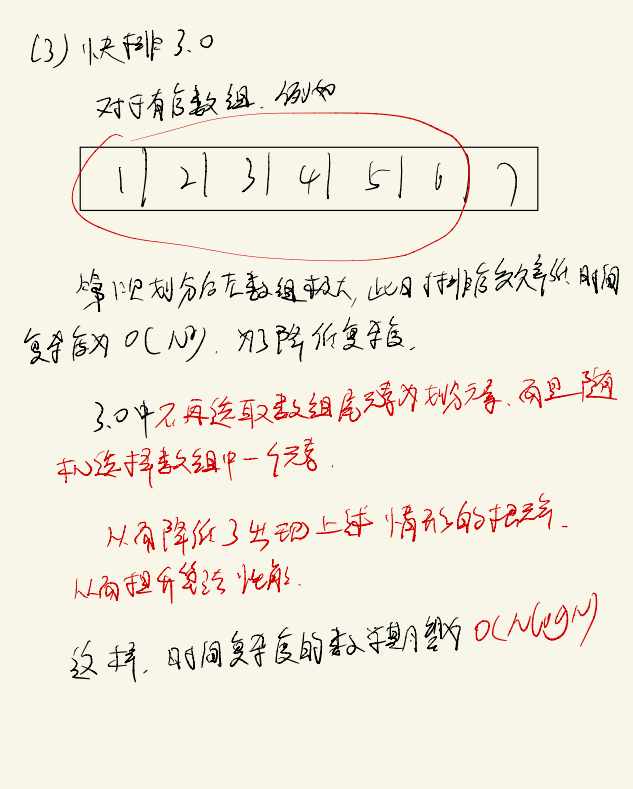 (3) 快排 3.0
对于有序数组. 例如
1| 2| 3| 4| 5| 6| 7
第一次划分后左数组极大, 此时排序效率低 时间
复杂度为 O(N²). 为了降低复杂度,
3.0中不再选取数组尾元素为划分元素. 而且 随
机选择数组中一个元素.
从而降低了出现上述情形的概率.
从而提升算法性能.
这样, 时间复杂度的数学期望为 O(NlogN)